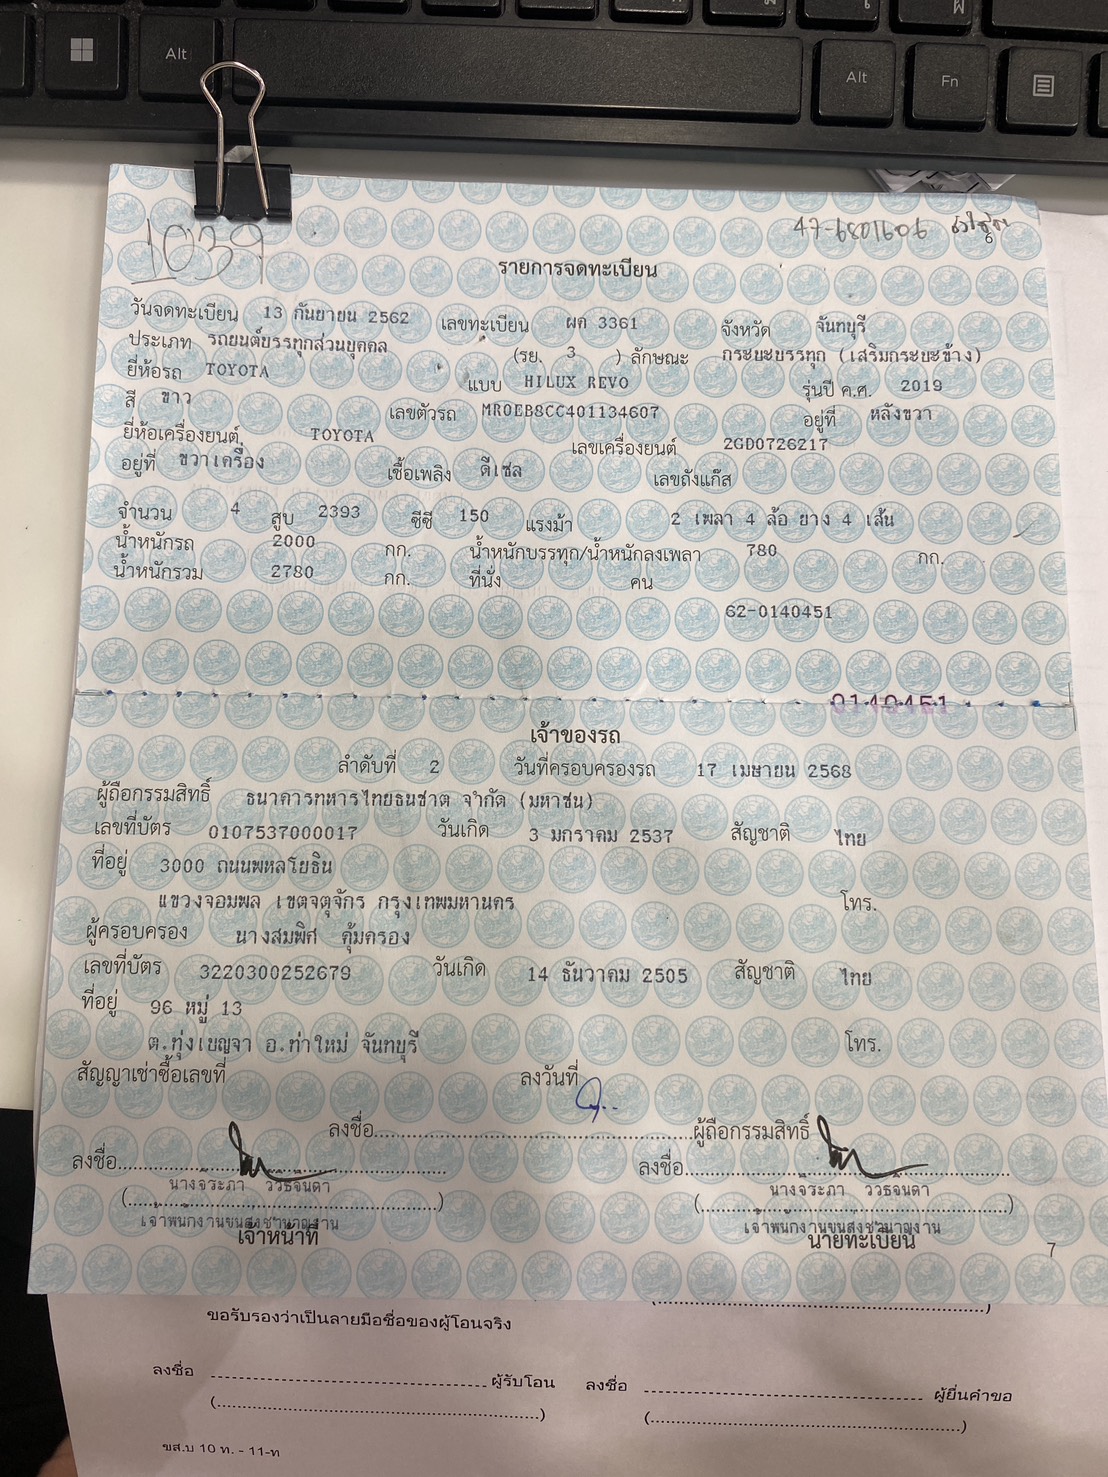 Alt
Alt
Fn
1039
47-6801606
รายการจดทะเบียน
วันจดทะเบียน 13 กันยายน 2562 เลขทะเบียน ผค 3361 จังหวัด จันทบุรี
ประเภท รถยนต์บรรทุกส่วนบุคคล (รย. 3 ) ลักษณะ กระบะบรรทุก (เสริมกระบะข้าง)
ยี่ห้อรถ TOYOTA แบบ HILUX REVO รุ่นปี ค.ศ. 2019
สี ขาว เลขตัวรถ MR0EB8CC401134607 อยู่ที่ หลังขวา
ยี่ห้อเครื่องยนต์ TOYOTA เลขเครื่องยนต์ 2GD0726217
อยู่ที่ ขวาเครื่อง เชื้อเพลิง ดีเซล เลขถังแก๊ส
จำนวน 4 สูบ 2393 ซีซี 150 แรงม้า 2 เพลา 4 ล้อ ยาง 4 เส้น
น้ำหนักรถ 2000 กก. น้ำหนักบรรทุก/น้ำหนักลงเพลา 780 กก.
น้ำหนักรวม 2780 กก. ที่นั่ง คน
62-0140451
0140451
เจ้าของรถ
ลำดับที่ 2 วันที่ครอบครองรถ 17 เมษายน 2568
ผู้ถือกรรมสิทธิ์ ธนาคารทหารไทยธนชาต จำกัด (มหาชน)
เลขที่บัตร 0107537000017 วันเกิด 3 มกราคม 2537 สัญชาติ ไทย
ที่อยู่ 3000 ถนนพหลโยธิน
แขวงจอมพล เขตจตุจักร กรุงเทพมหานคร โทร.
ผู้ครอบครอง นางสมพิศ คุ้มครอง
เลขที่บัตร 3220300252679 วันเกิด 14 ธันวาคม 2505 สัญชาติ ไทย
ที่อยู่ 96 หมู่ 13
ต.ทุ่งเบญจา อ.ท่าใหม่ จันทบุรี โทร.
สัญญาเช่าซื้อเลขที่ ลงวันที่
ลงชื่อ ผู้ถือกรรมสิทธิ์
ลงชื่อ ลงชื่อ
นางจิระภา วรธจินดา นางจิระภา วรธจินดา
เจ้าพนักงานขนส่งชำนาญงาน เจ้าพนักงานขนส่งชำนาญงาน
เจ้าหน้าที่ นายทะเบียน
7
ขอรับรองว่าเป็นลายมือชื่อของผู้โอนจริง
ลงชื่อ ผู้รับโอน ลงชื่อ ผู้ยื่นคำขอ
ขส.บ 10 ท. - 11-ท